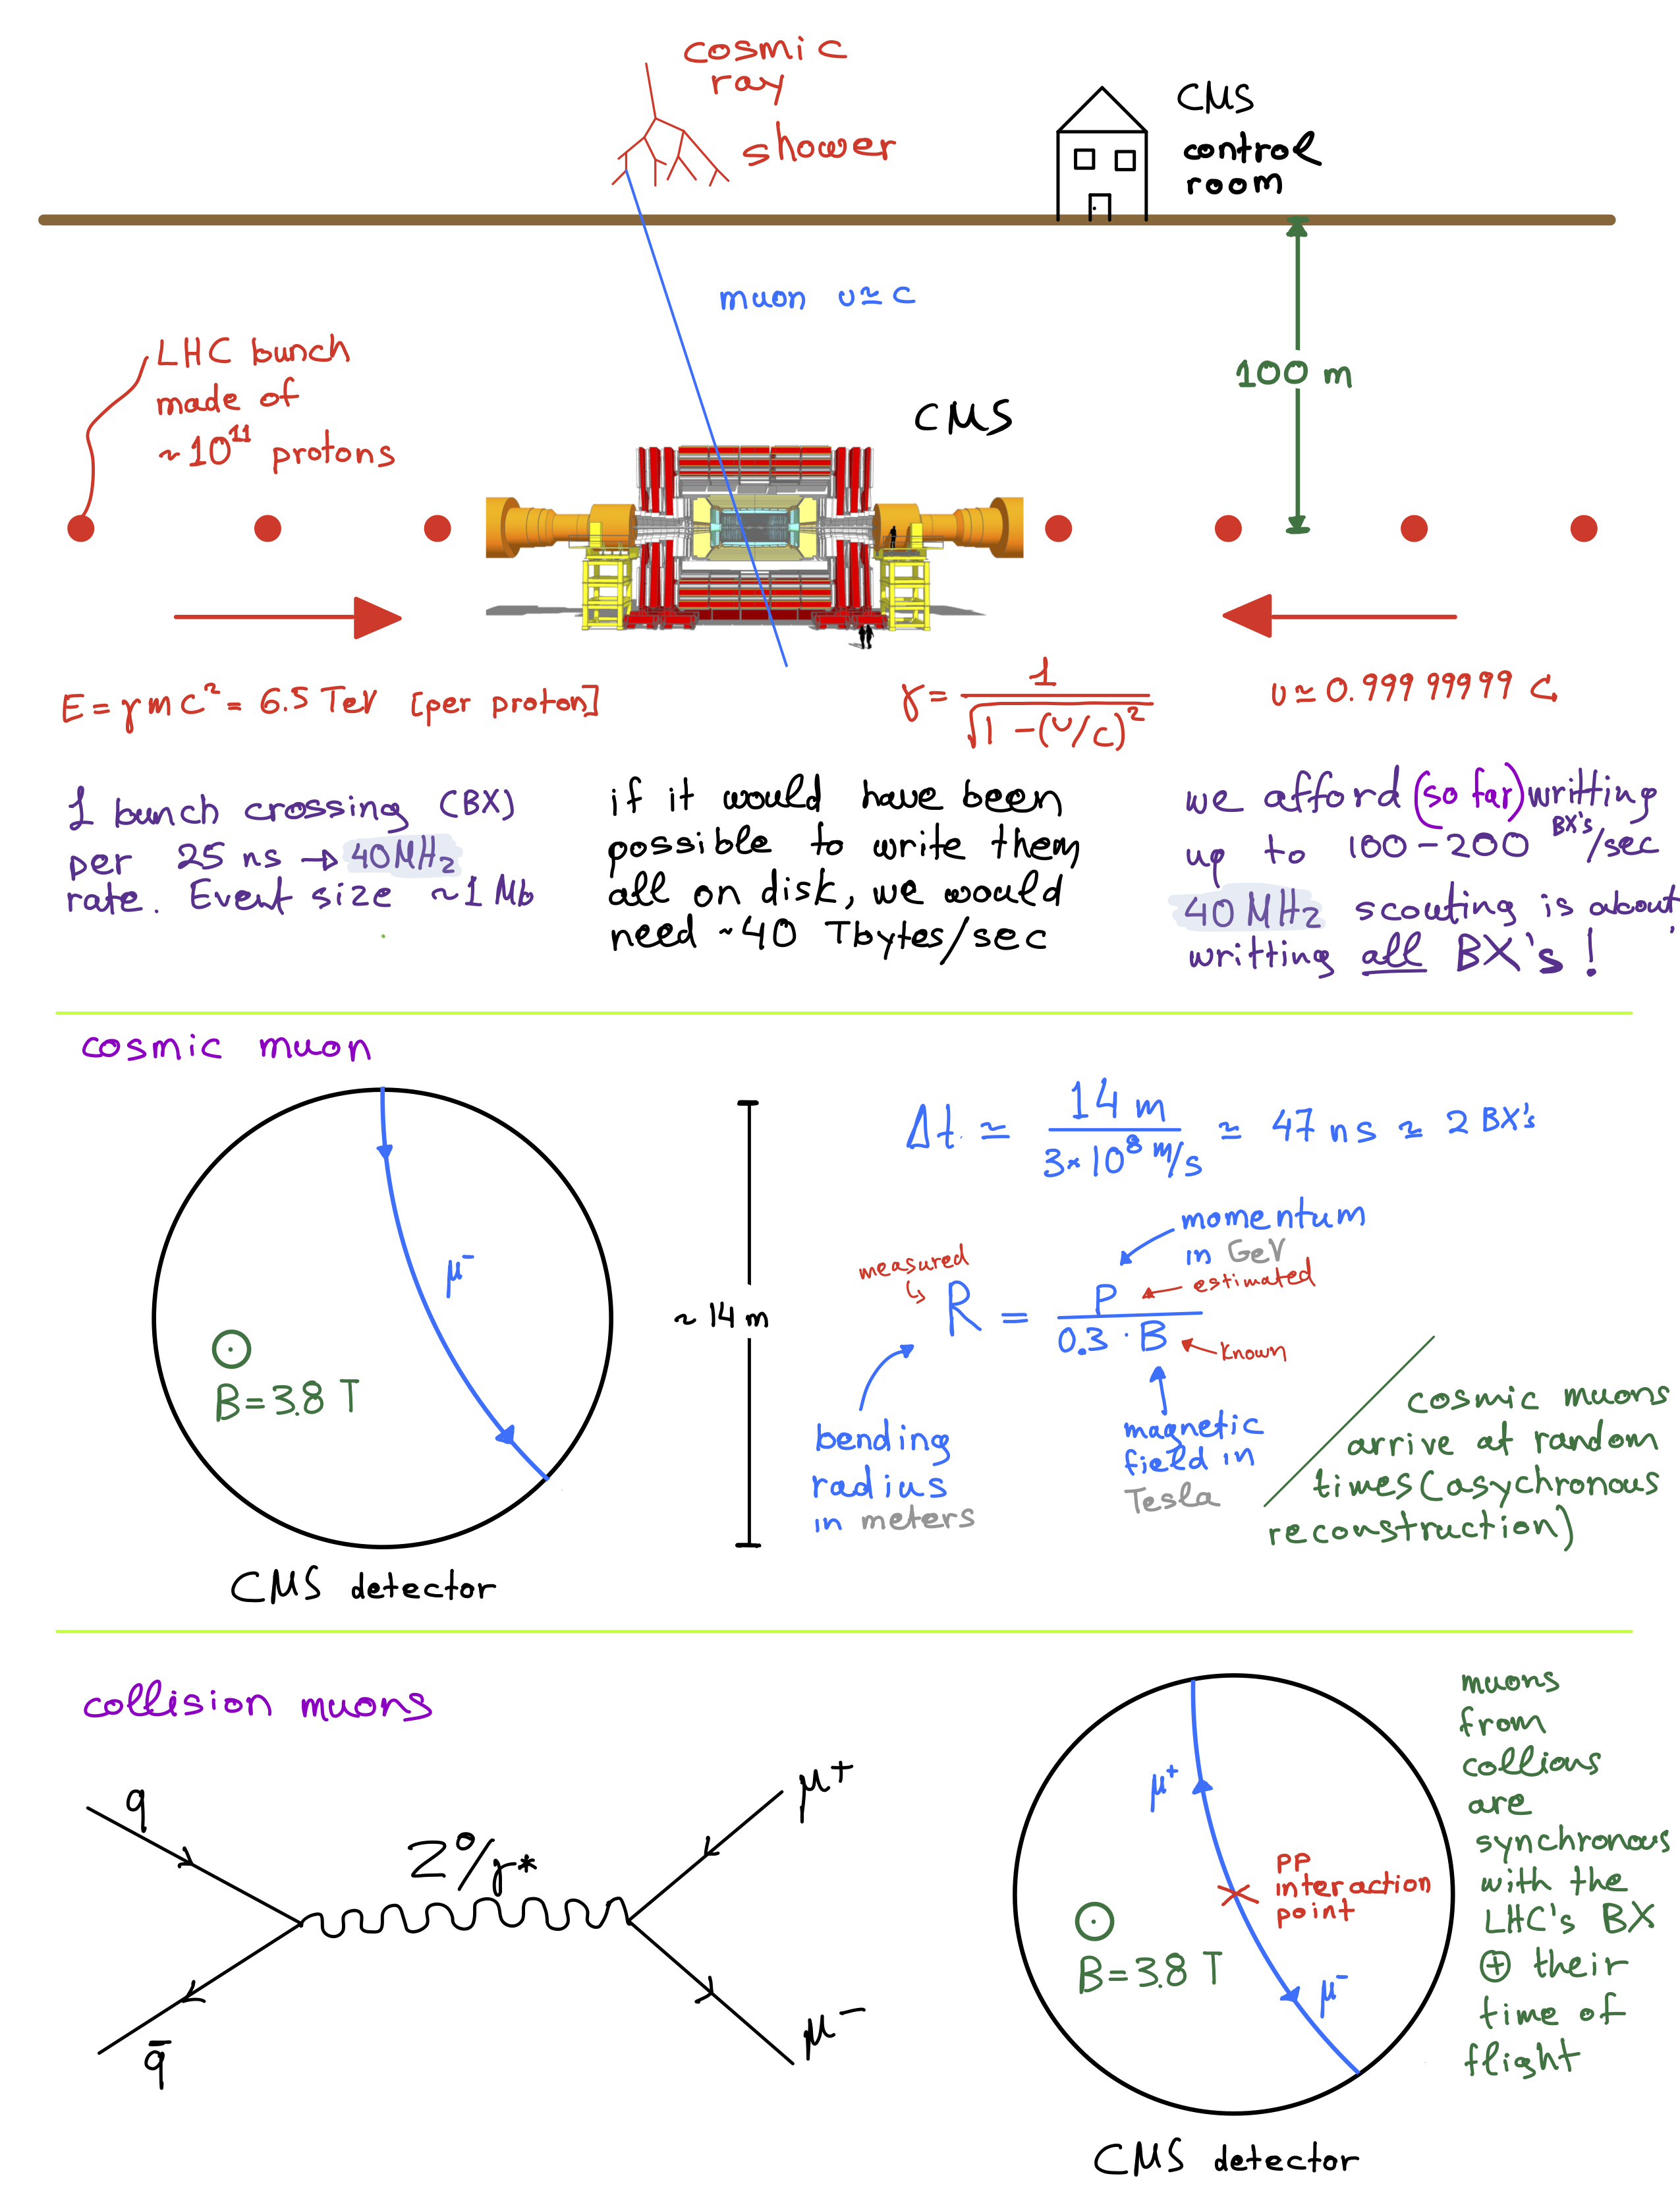 cosmic
ray
shower
CMS
control
room
muon υ≃c
LHC bunch
made of
~10¹¹ protons
CMS
100 m
E = γmc² = 6.5 TeV [per proton]
γ = 1 / √1-(υ/c)²
υ≃0.99999999 c
1 bunch crossing (BX)
per 25 ns → 40MHz
rate. Event size ~1Mb
if it would have been
possible to write them
all on disk, we would
need ~40 Tbytes/sec
we afford (so far) writting
up to 100-200 BX's/sec
40 MHz scouting is about
writting all BX's!
cosmic muon
μ⁻
B=3.8 T
CMS detector
~14 m
Δt ≃ 14 m / 3×10⁸ m/s ≃ 47 ns ≃ 2 BX's
momentum
in GeV
measured
estimated
R = P / 0.3 · B
known
bending
radius
in meters
magnetic
field in
Tesla
cosmic muons
arrive at random
times (asychronous
reconstruction)
collision muons
q
q̄
Z⁰/γ*
μ⁺
μ⁻
μ⁺
PP
interaction
point
B=3.8 T
μ⁻
CMS detector
muons
from
collions
are
synchronous
with the
LHC's BX
⊕ their
time of
flight